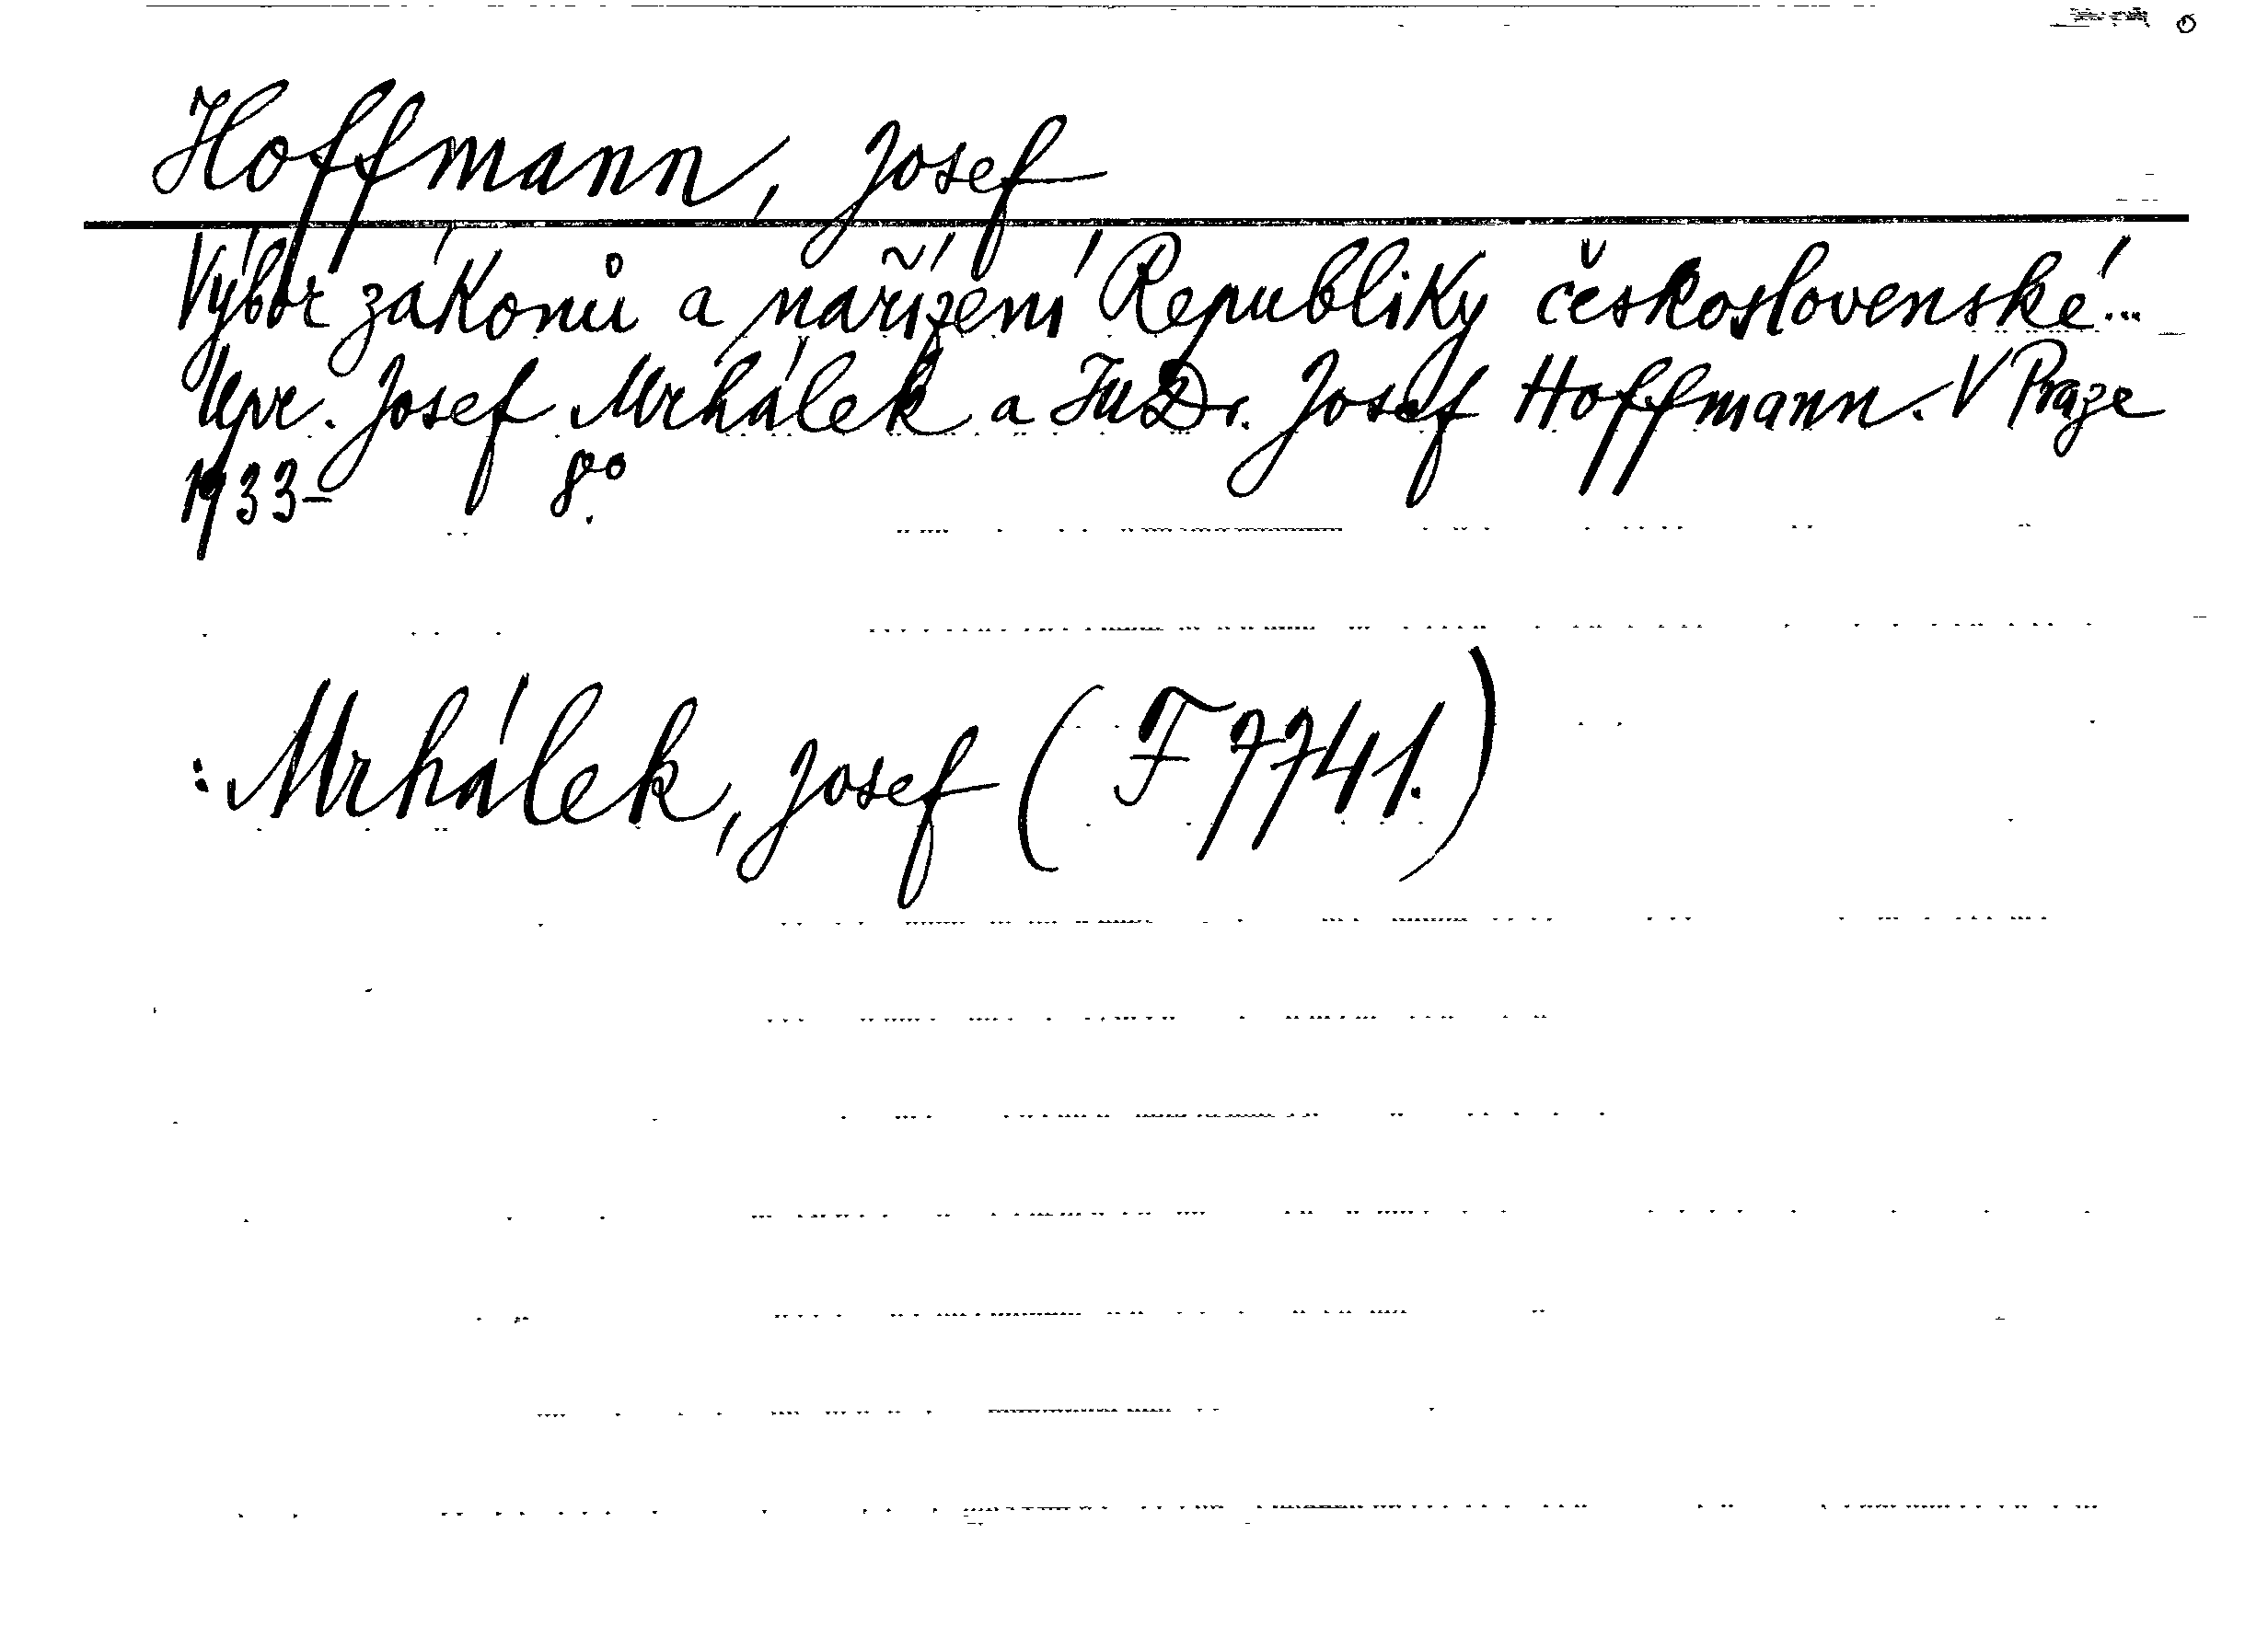 Hoffmann, Josef
Výbor zákonů a nařízení Republiky československé...
Upr. Josef Mrhálek a JUDr. Josef Hoffmann. V Praze
1933- 8°.
: Mrhálek, Josef (F 7741.)